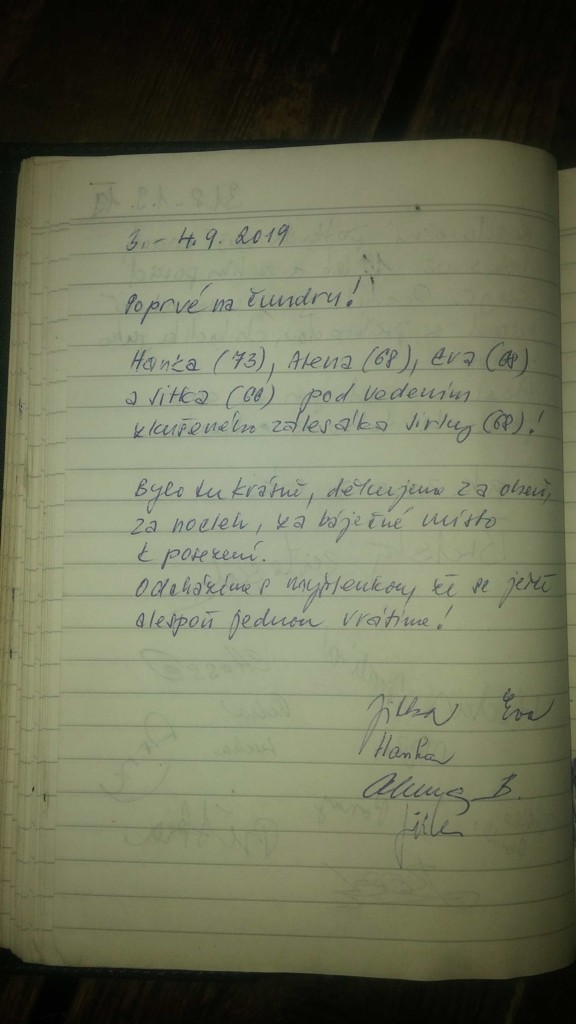 3. - 4.9. 2019
Poprvé na čundru!
Hanka (73), Alena (68), Eva (68)
a Jitka (66) pod vedením
zkušeného zálesáka Jirky (68)!
Bylo tu krásně, děkujeme za oheň,
za nocleh, za báječné místo
k posezení.
Odcházíme s myšlenkou, že se ještě
alespoň jednou vrátíme!
Jitka Eva
Hanka
Alena B.